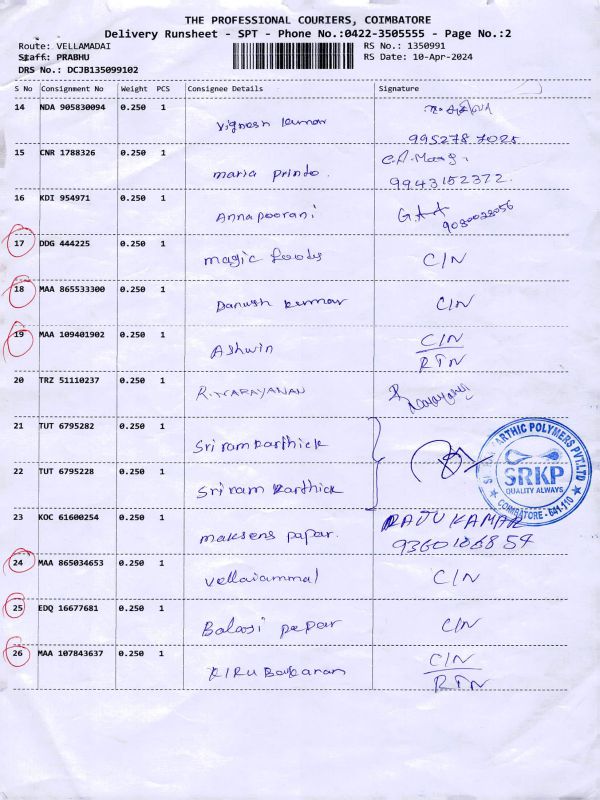 THE PROFESSIONAL COURIERS, COIMBATORE
Delivery Runsheet - SPT - Phone No.:0422-3505555 - Page No.:2
Route: VELLAMADAI RS No.: 1350991
Staff: PRABHU RS Date: 10-Apr-2024
DRS No.: DCJB135099102
S No Consignment No Weight PCS Consignee Details Signature
14 NDA 905830094 0.250 1 Vignesh kumar
995278 7025
15 CNR 1788326 0.250 1 maria printo.
9943152372.
16 KDI 954971 0.250 1 Annapoorani
17 DDG 444225 0.250 1 magic foods C/N
18 MAA 865533300 0.250 1 Danush kumar C/N
19 MAA 109401902 0.250 1 Ashwin C/N
RTN
20 TRZ 51110237 0.250 1 R.NARAYANAN
21 TUT 6795282 0.250 1 Sri ram karthick
22 TUT 6795228 0.250 1 Sri ram karthick
KARTHIC POLYMERS PVT.LTD
SRKP
QUALITY ALWAYS
COIMBATORE - 641 110
23 KOC 61600254 0.250 1 maksens papar. RAJU KAMAR
9360106854
24 MAA 865034653 0.250 1 vellaiammal C/N
25 EDQ 16677681 0.250 1 Balaji papar C/N
26 MAA 107843637 0.250 1 KIRUBakaran C/N
RTN